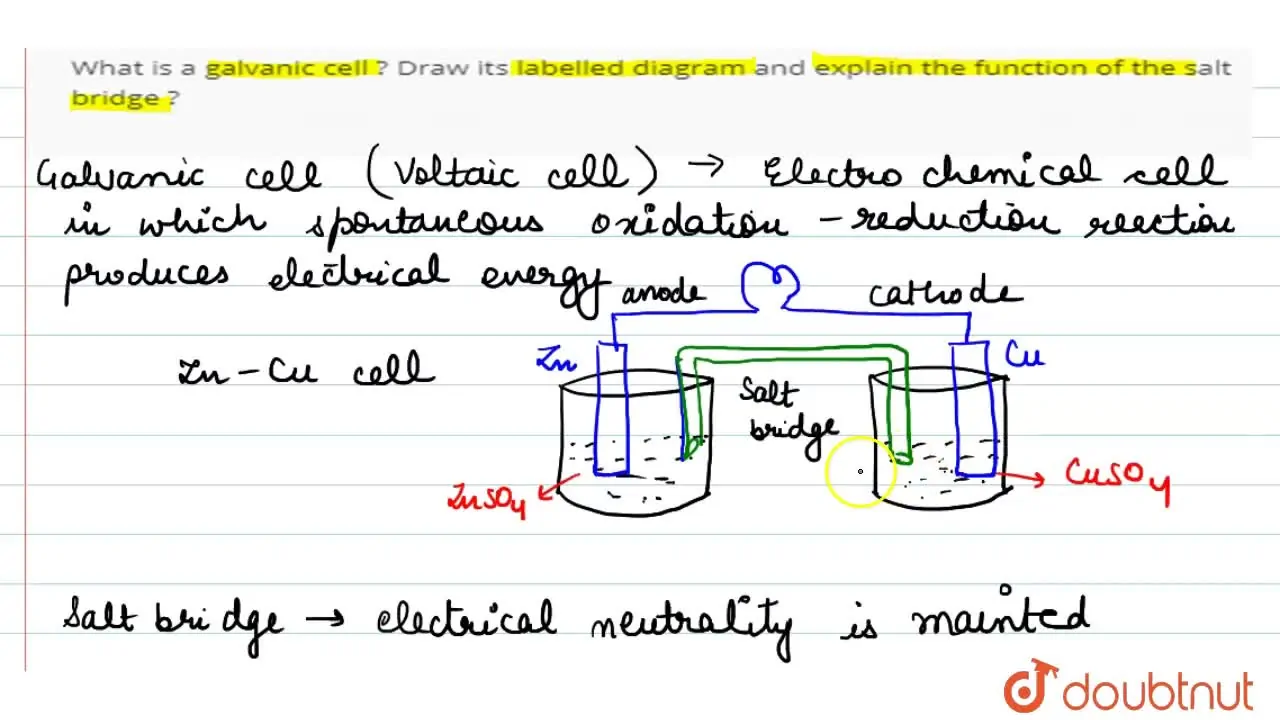 What is a galvanic cell ? Draw its labelled diagram and explain the function of the salt
bridge ?
Galvanic cell (Voltaic cell) → Electro chemical cell
in which spontaneous oxidation - reduction reection
produces electrical energy
anode
cathode
Zn
Cu
Zn - Cu cell
Salt
bridge
ZnSO4
CuSO4
Salt bridge → electrical neutrality is mainted
doubtnut